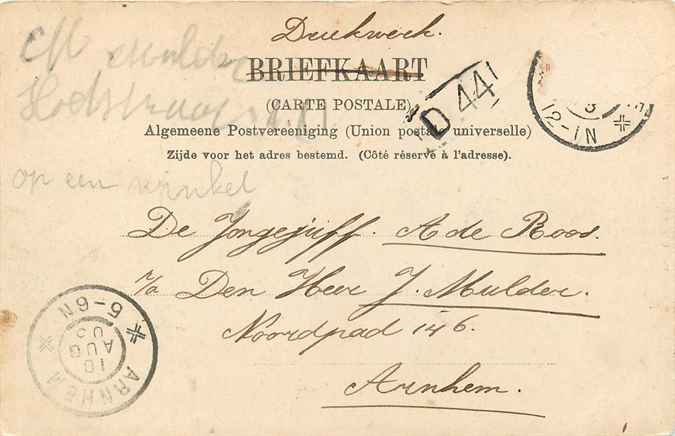 Drukwerk.
BRIEFKAART
(CARTE POSTALE)
Algemeene Postvereeniging (Union postale universelle)
Zijde voor het adres bestemd. (Côté réservé à l'adresse).
D 44
12-1N
Mulder
op een winkel
De Jongejuff. A de Roos.
p/a Den Heer J. Mulder.
Noordpad 146.
Arnhem.
ARNHEM
10 AUG 03
5-6N